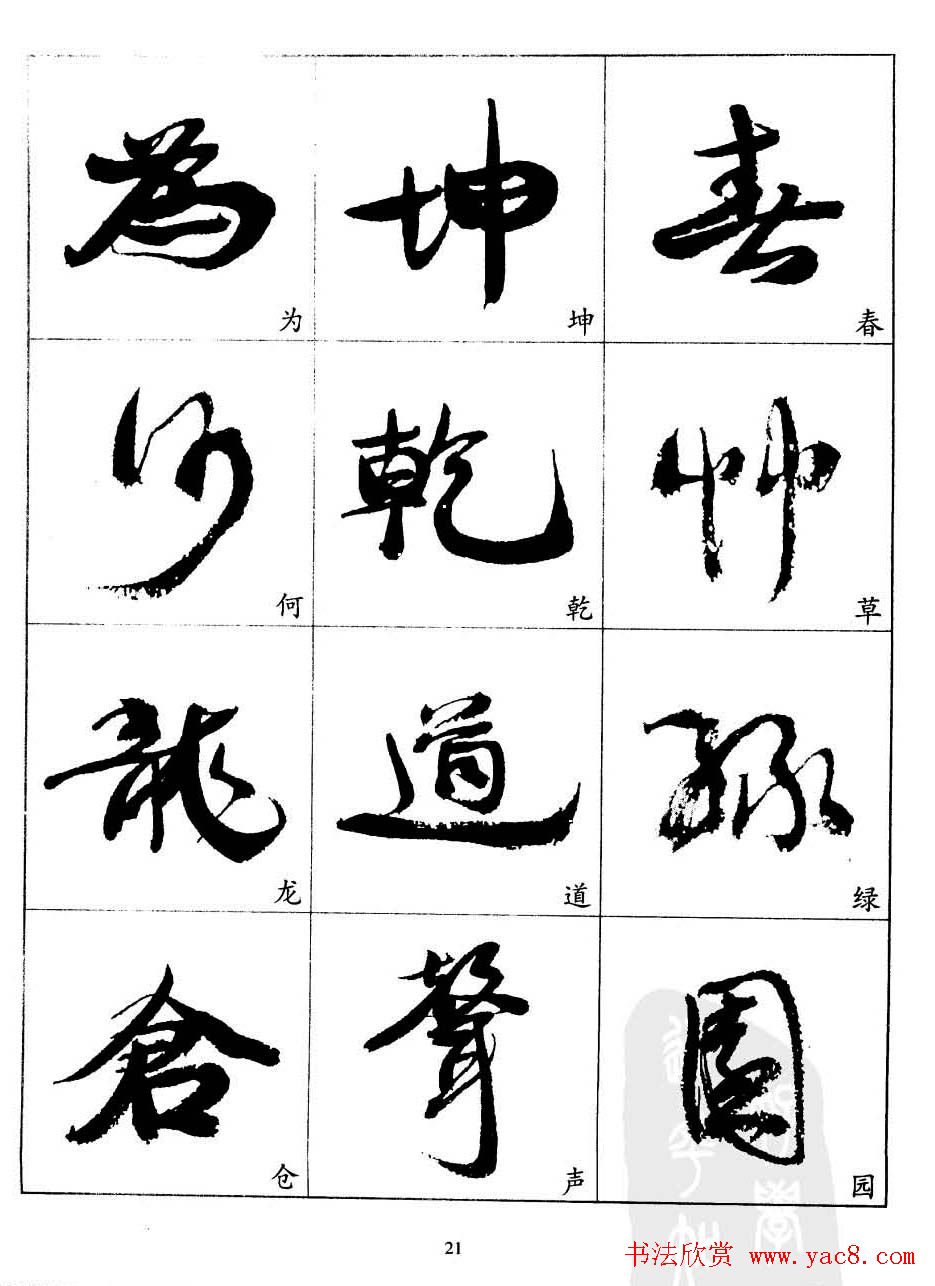 春
春
艸
草
綠
绿
園
园
坤
坤
乾
乾
道
道
聲
声
為
为
何
何
龍
龙
倉
仓
21
书法欣赏 www.yac8.com